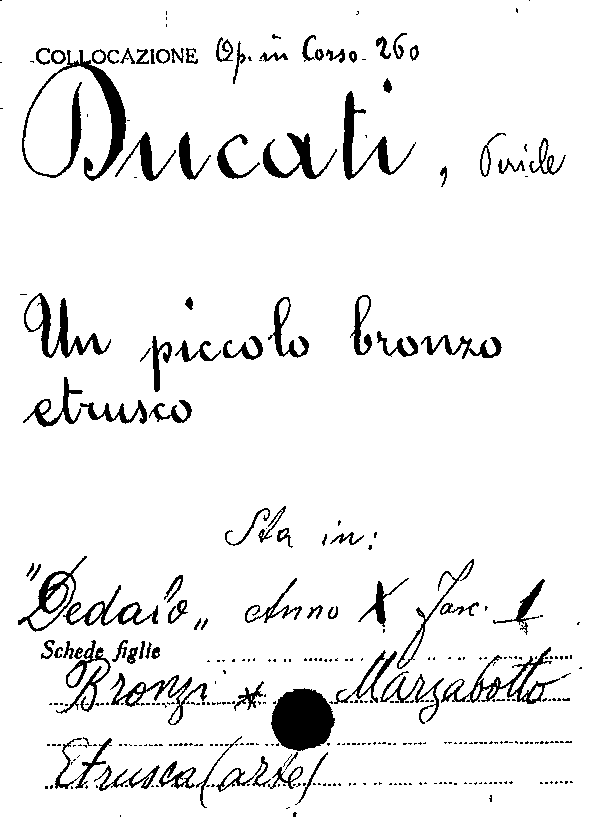 COLLOCAZIONE Op. in Corso 260
Ducati, Pericle
Un piccolo bronzo
etrusco
Sta in:
"Dedalo„ Anno X Fasc. 1
Schede figlie
Bronzi * Marzabotto
Etrusca (arte)